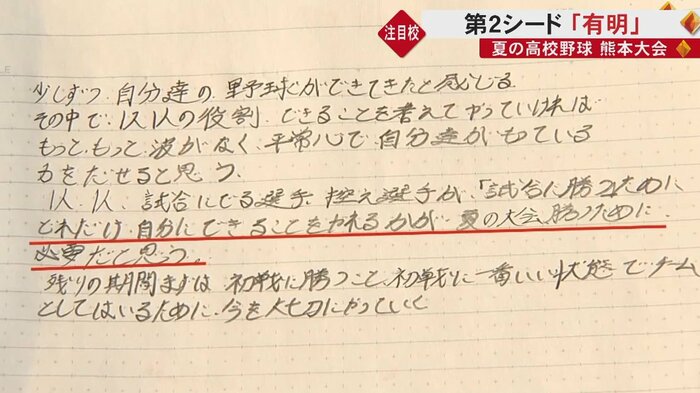 注目校
第2シード「有明」
夏の高校野球 熊本大会
少しずつ、自分達の野球ができてきたと感じる
その中で、1人1人の役割、できることを考えてやっていければ
もっと、もっと、波がなく、平常心で、自分達がもっている
力をだせると思う。
1人、1人、試合にでる選手、控え選手が、「試合に勝つ」ために
どれだけ、自分にできることをやれるかが、夏の大会、勝つために
必要だと思う。
残りの期間まずは、初戦に勝つこと、初戦に一番いい状態でチーム
としてはいるために、今を大切にやっていく